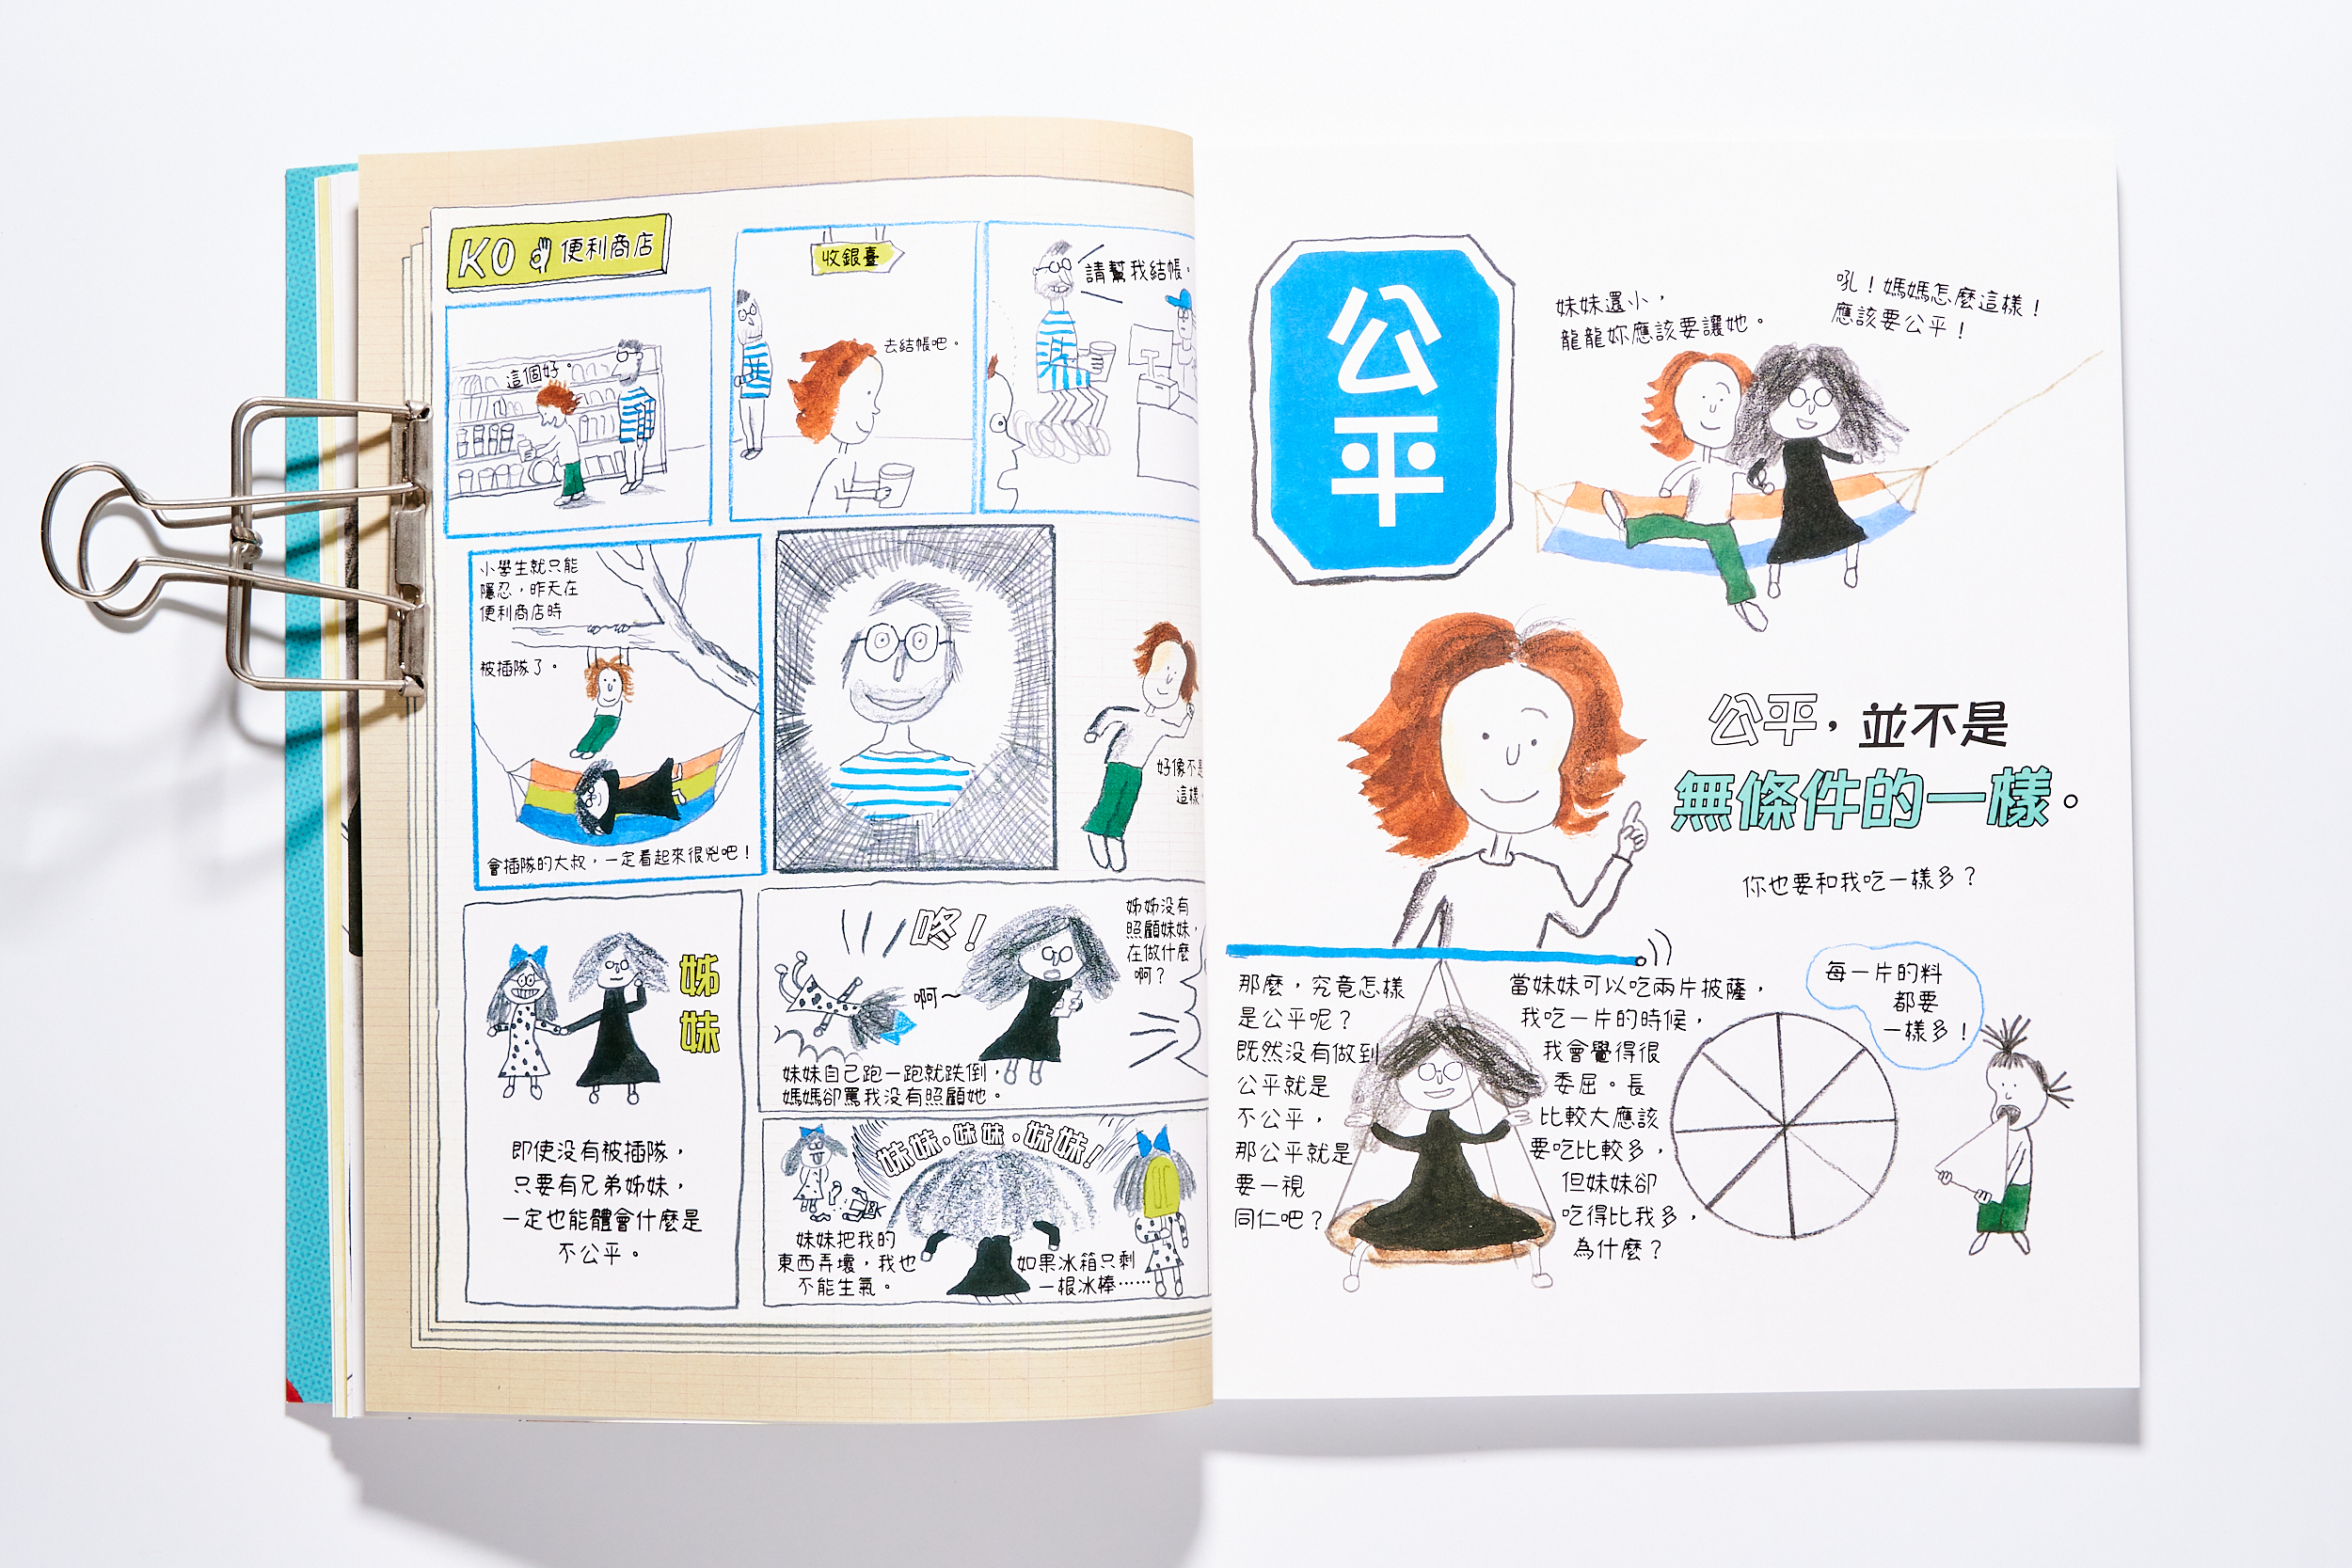 KO 便利商店
這個好。
收銀臺
去結帳吧。
請幫我結帳。
小學生就只能
隱忍，昨天在
便利商店時
被插隊了。
會插隊的大叔，一定看起來很兇吧！
好像不是
這樣
姊
妹
即使没有被插隊，
只要有兄弟姊妹，
一定也能體會什麼是
不公平。
咚！
啊～
姊姊没有
照顧妹妹，
在做什麼
啊？
妹妹自己跑一跑就跌倒，
媽媽卻罵我没有照顧她。
妹妹，妹妹，妹妹！
妹妹把我的
東西弄壞，我也
不能生氣。
如果冰箱只剩
一根冰棒……
公
平
妹妹還小，
龍龍妳應該要讓她。
吼！媽媽怎麼這樣！
應該要公平！
公平，並不是
無條件的一樣。
你也要和我吃一樣多？
那麼，究竟怎樣
是公平呢？
既然没有做到
公平就是
不公平，
那公平就是
要一視
同仁吧？
當妹妹可以吃兩片披薩，
我吃一片的時候，
我會覺得很
委屈。長
比較大應該
要吃比較多，
但妹妹卻
吃得比我多，
為什麼？
每一片的料
都要
一樣多！